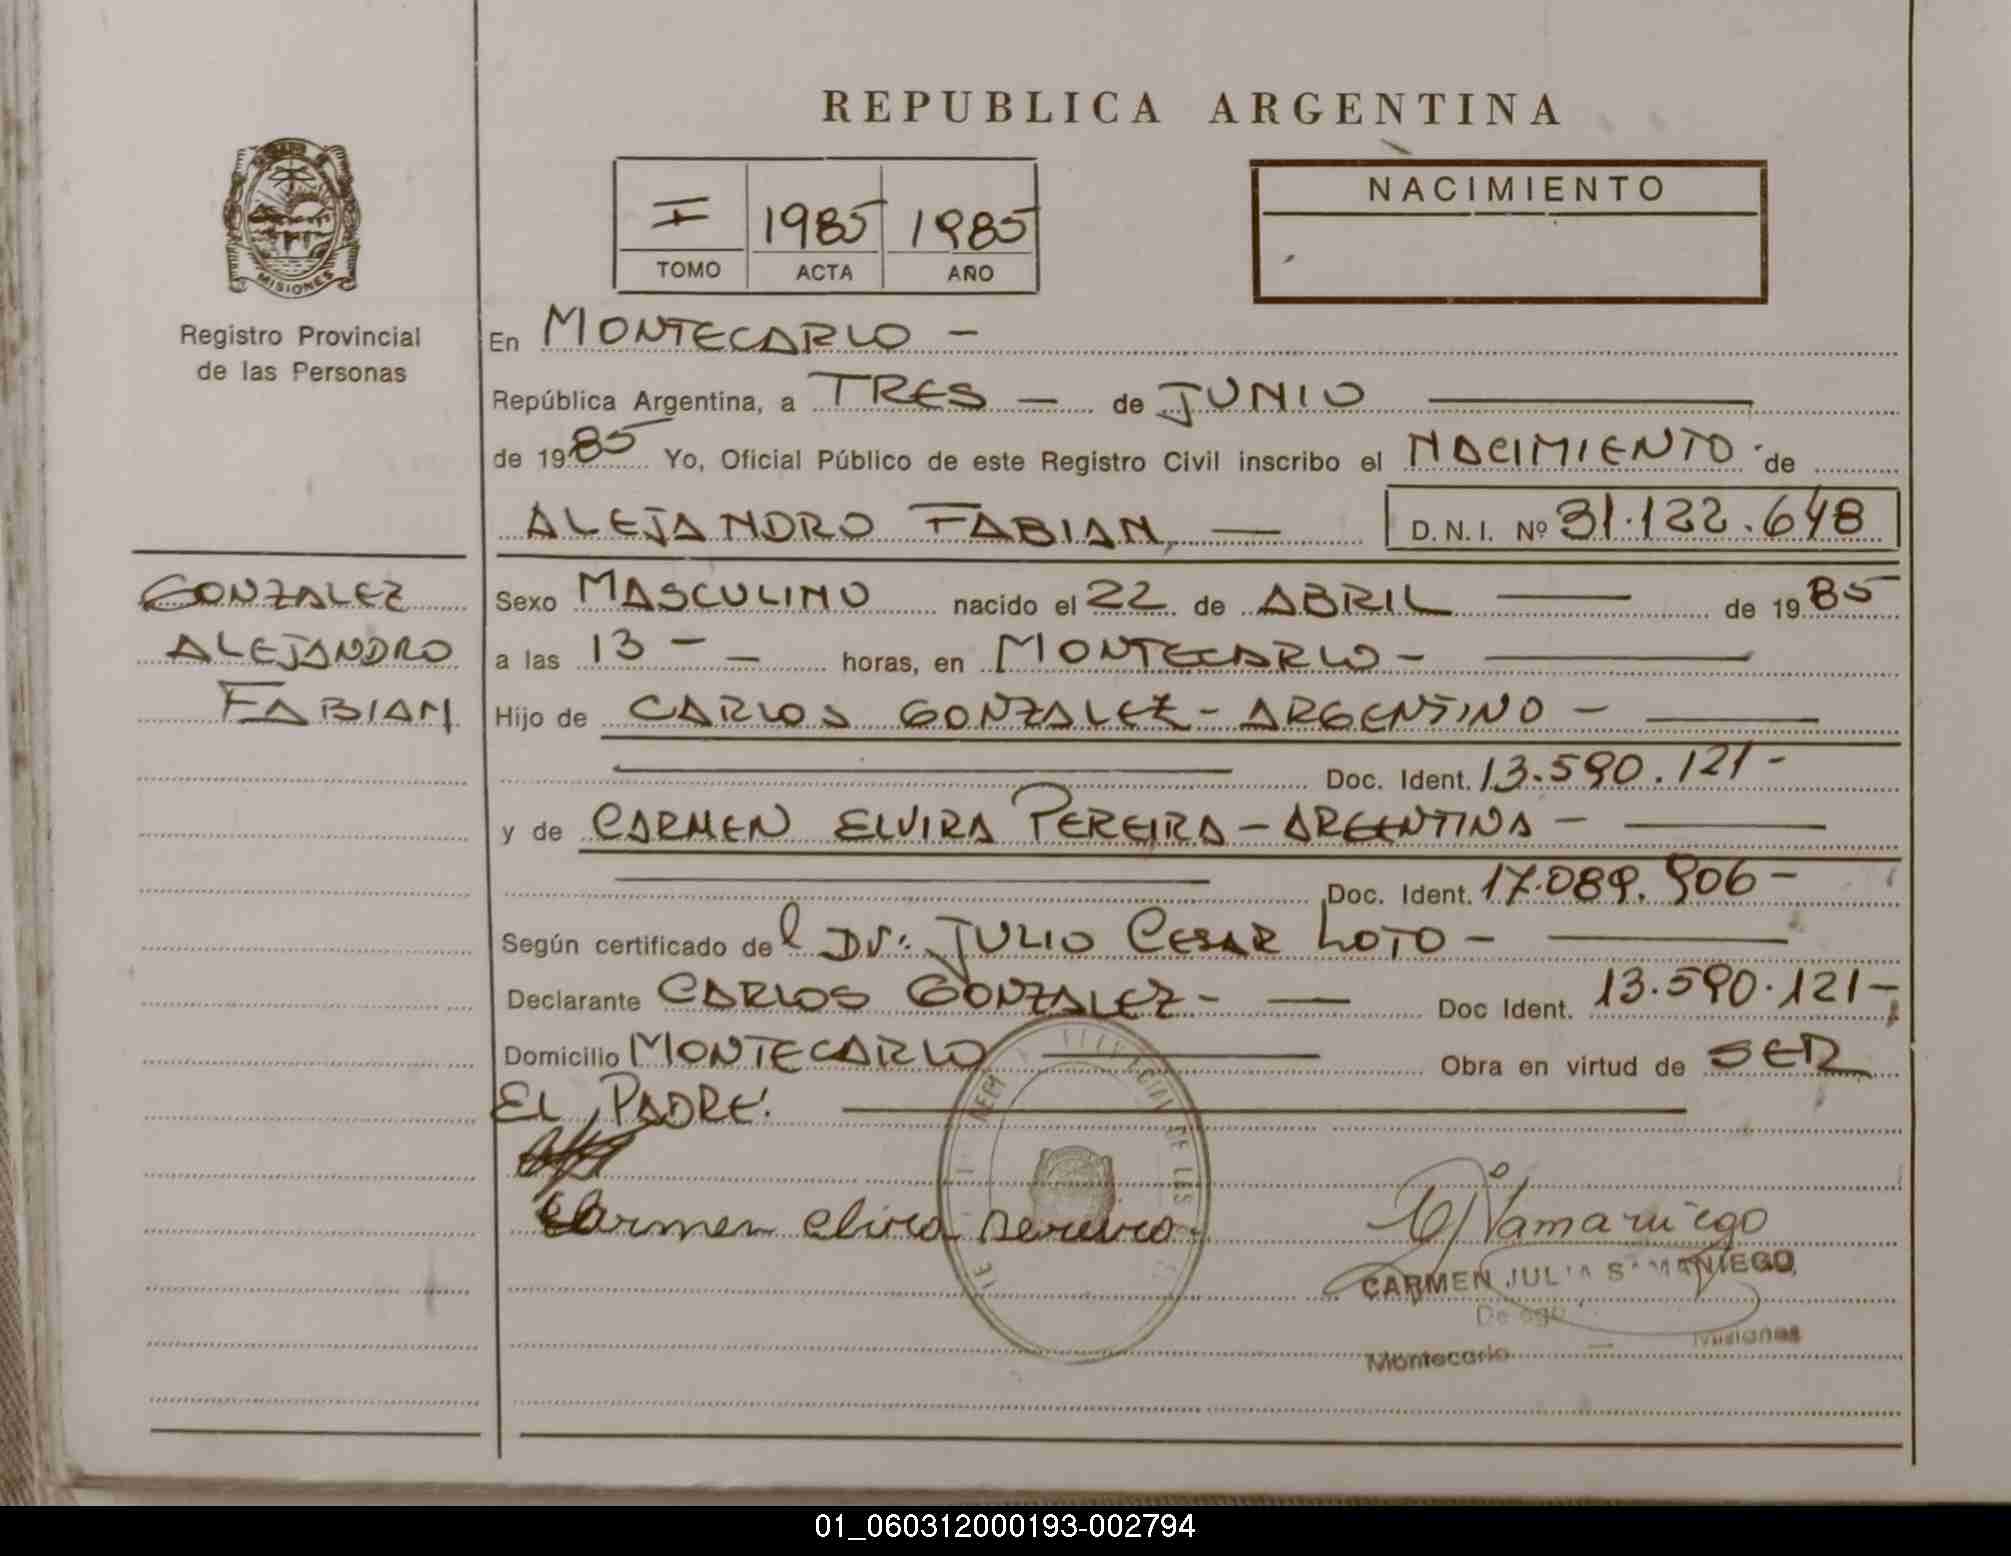 REPUBLICA ARGENTINA
MISIONES
Registro Provincial
de las Personas
I 1985 1985
TOMO ACTA AÑO
NACIMIENTO
En MONTECARLO -
República Argentina, a TRES — de JUNIO
de 1985 Yo, Oficial Público de este Registro Civil inscribo el NACIMIENTO de
ALEJANDRO FABIAN, — D.N.I. Nº 31.122.648
GONZALEZ
ALEJANDRO
FABIAN
Sexo MASCULINO nacido el 22 de ABRIL — de 1985
a las 13 - - horas, en MONTECARLO -
Hijo de CARLOS GONZALEZ - ARGENTINO -
Doc. Ident. 13.590.121-
y de CARMEN ELVIRA PEREIRA - ARGENTINA -
Doc. Ident. 17.089.906-
Según certificado del Dr: JULIO CESAR LOTO -
Declarante CARLOS GONZALEZ - — Doc Ident. 13.590.121-
Domicilio MONTECARLO — Obra en virtud de SER
EL PADRE.
Carmen elvira Pereira
CARMEN JULIA SAMANIEGO
Montecarlo — Misiones
01_060312000193-002794